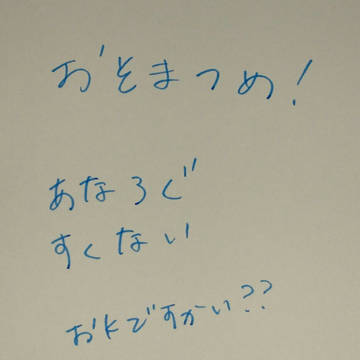 おそまつめ!
あなろぐ
すくない
おkですかい??